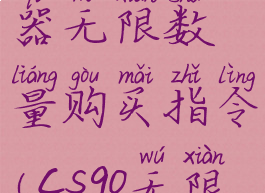 器无限数
liáng gòu mǎi zhǐ lìng
量购买指令
wú xiàn
(CS90无限